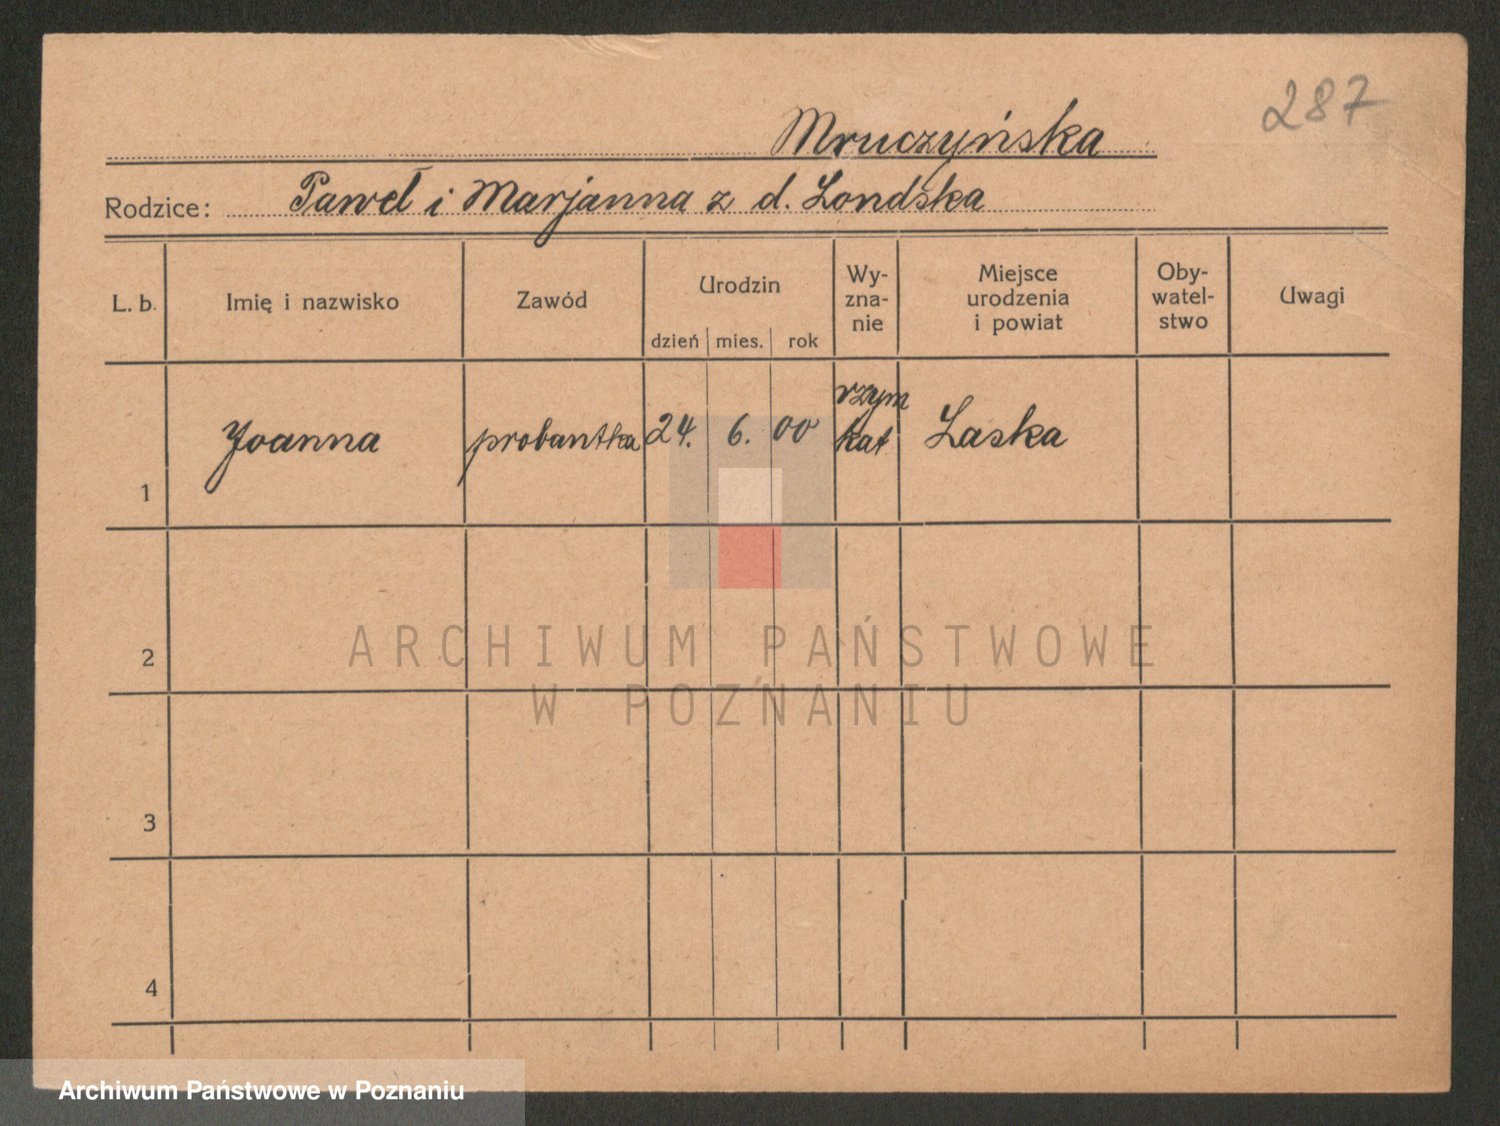 287
Mruczyńska
Rodzice: Paweł i Marjanna z d. Londska
L. b. Imię i nazwisko Zawód Urodzin Wy-zna-nie Miejsce urodzenia i powiat Oby-watel-stwo Uwagi
dzień mies. rok
1 Joanna probantka 24. 6. 00 rzym kat Laska
2
3
4
ARCHIWUM PAŃSTWOWE
W POZNANIU
Archiwum Państwowe w Poznaniu